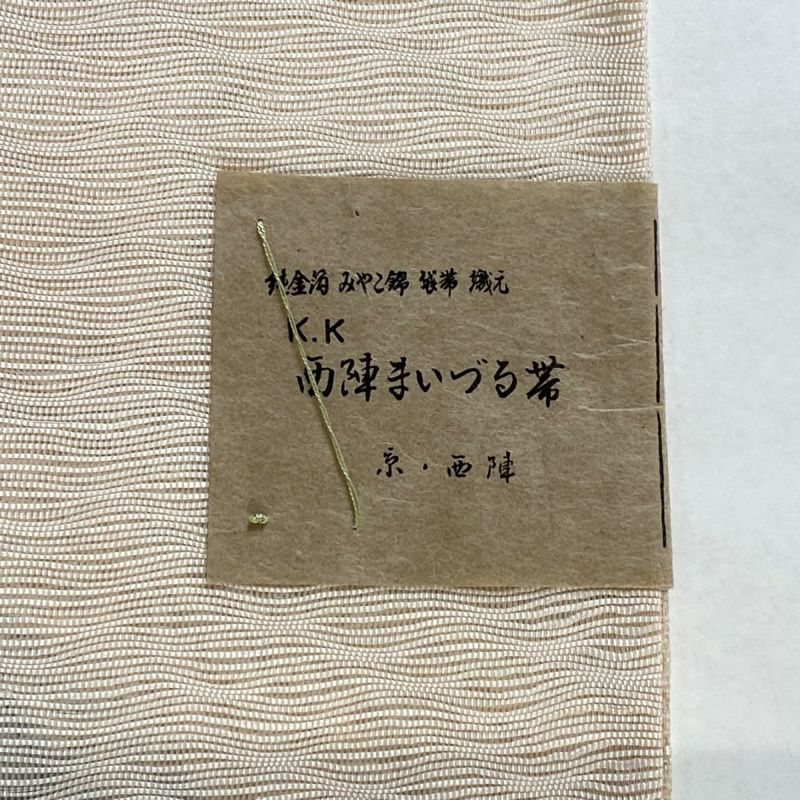 純金箔 みやこ錦 袋帯 織元
K.K
西陣まいづる帯
京・西陣